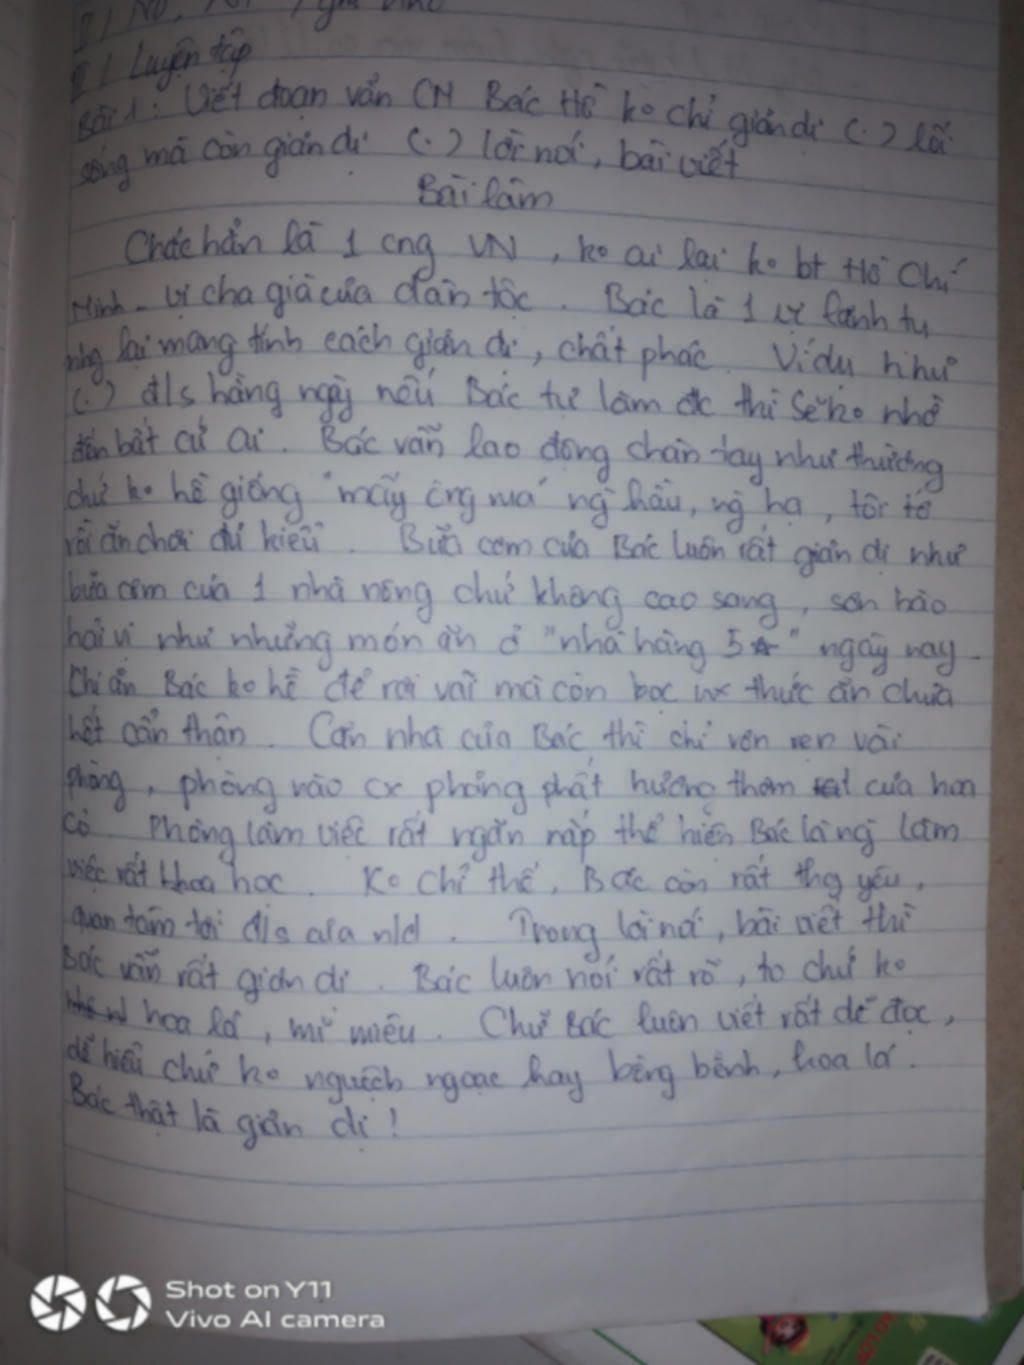 II / Luyện tập
Bài 1: Viết đoạn văn CM Bác Hồ ko chỉ giản dị (.) lối
sống mà còn giản dị (.) lời nói, bài viết
Bài làm
Chắc hẳn là 1 cng VN, ko ai lại ko bt Hồ Chí
Minh - vị cha già của dân tộc. Bác là 1 vị lãnh tụ
nhg lại mang tính cách giản dị, chất phác. Ví dụ như
(.) đ/s hằng ngày nếu Bác tự làm đc thì sẽ ko nhờ
đến bất cứ ai. Bác vẫn lao động chân tay như thường
chứ ko hề giống "mấy ông vua" ng hầu, ng hạ, tôi tớ
rồi ăn chơi đủ kiểu. Bữa cơm của Bác luôn rất giản dị như
bữa cơm của 1 nhà nông chứ không cao sang, sơn hào
hải vị như những món ăn ở "nhà hàng 5☆" ngày nay.
Khi ăn Bác ko hề để rơi vãi mà còn bọc thức ăn chưa
hết cẩn thận. Căn nhà của Bác thì chỉ vỏn vẹn vài
phòng, phòng nào cx phảng phất hương thơm của hoa
cỏ. Phòng làm việc rất ngăn nắp thể hiện Bác là ng làm
việc rất khoa học. Ko chỉ thế, Bác còn rất thg yêu,
quan tâm tới đ/s của nlđ. Trong lời nói, bài viết thì
Bác vẫn rất giản dị. Bác luôn nói rất rõ, to chứ ko
hoa lá, mĩ miều. Chữ Bác luôn viết rất dễ đọc,
dễ hiểu chứ ko nguệch ngoạc hay bềng bềnh, hoa lá.
Bác thật là giản dị!
Shot on Y11
Vivo AI camera